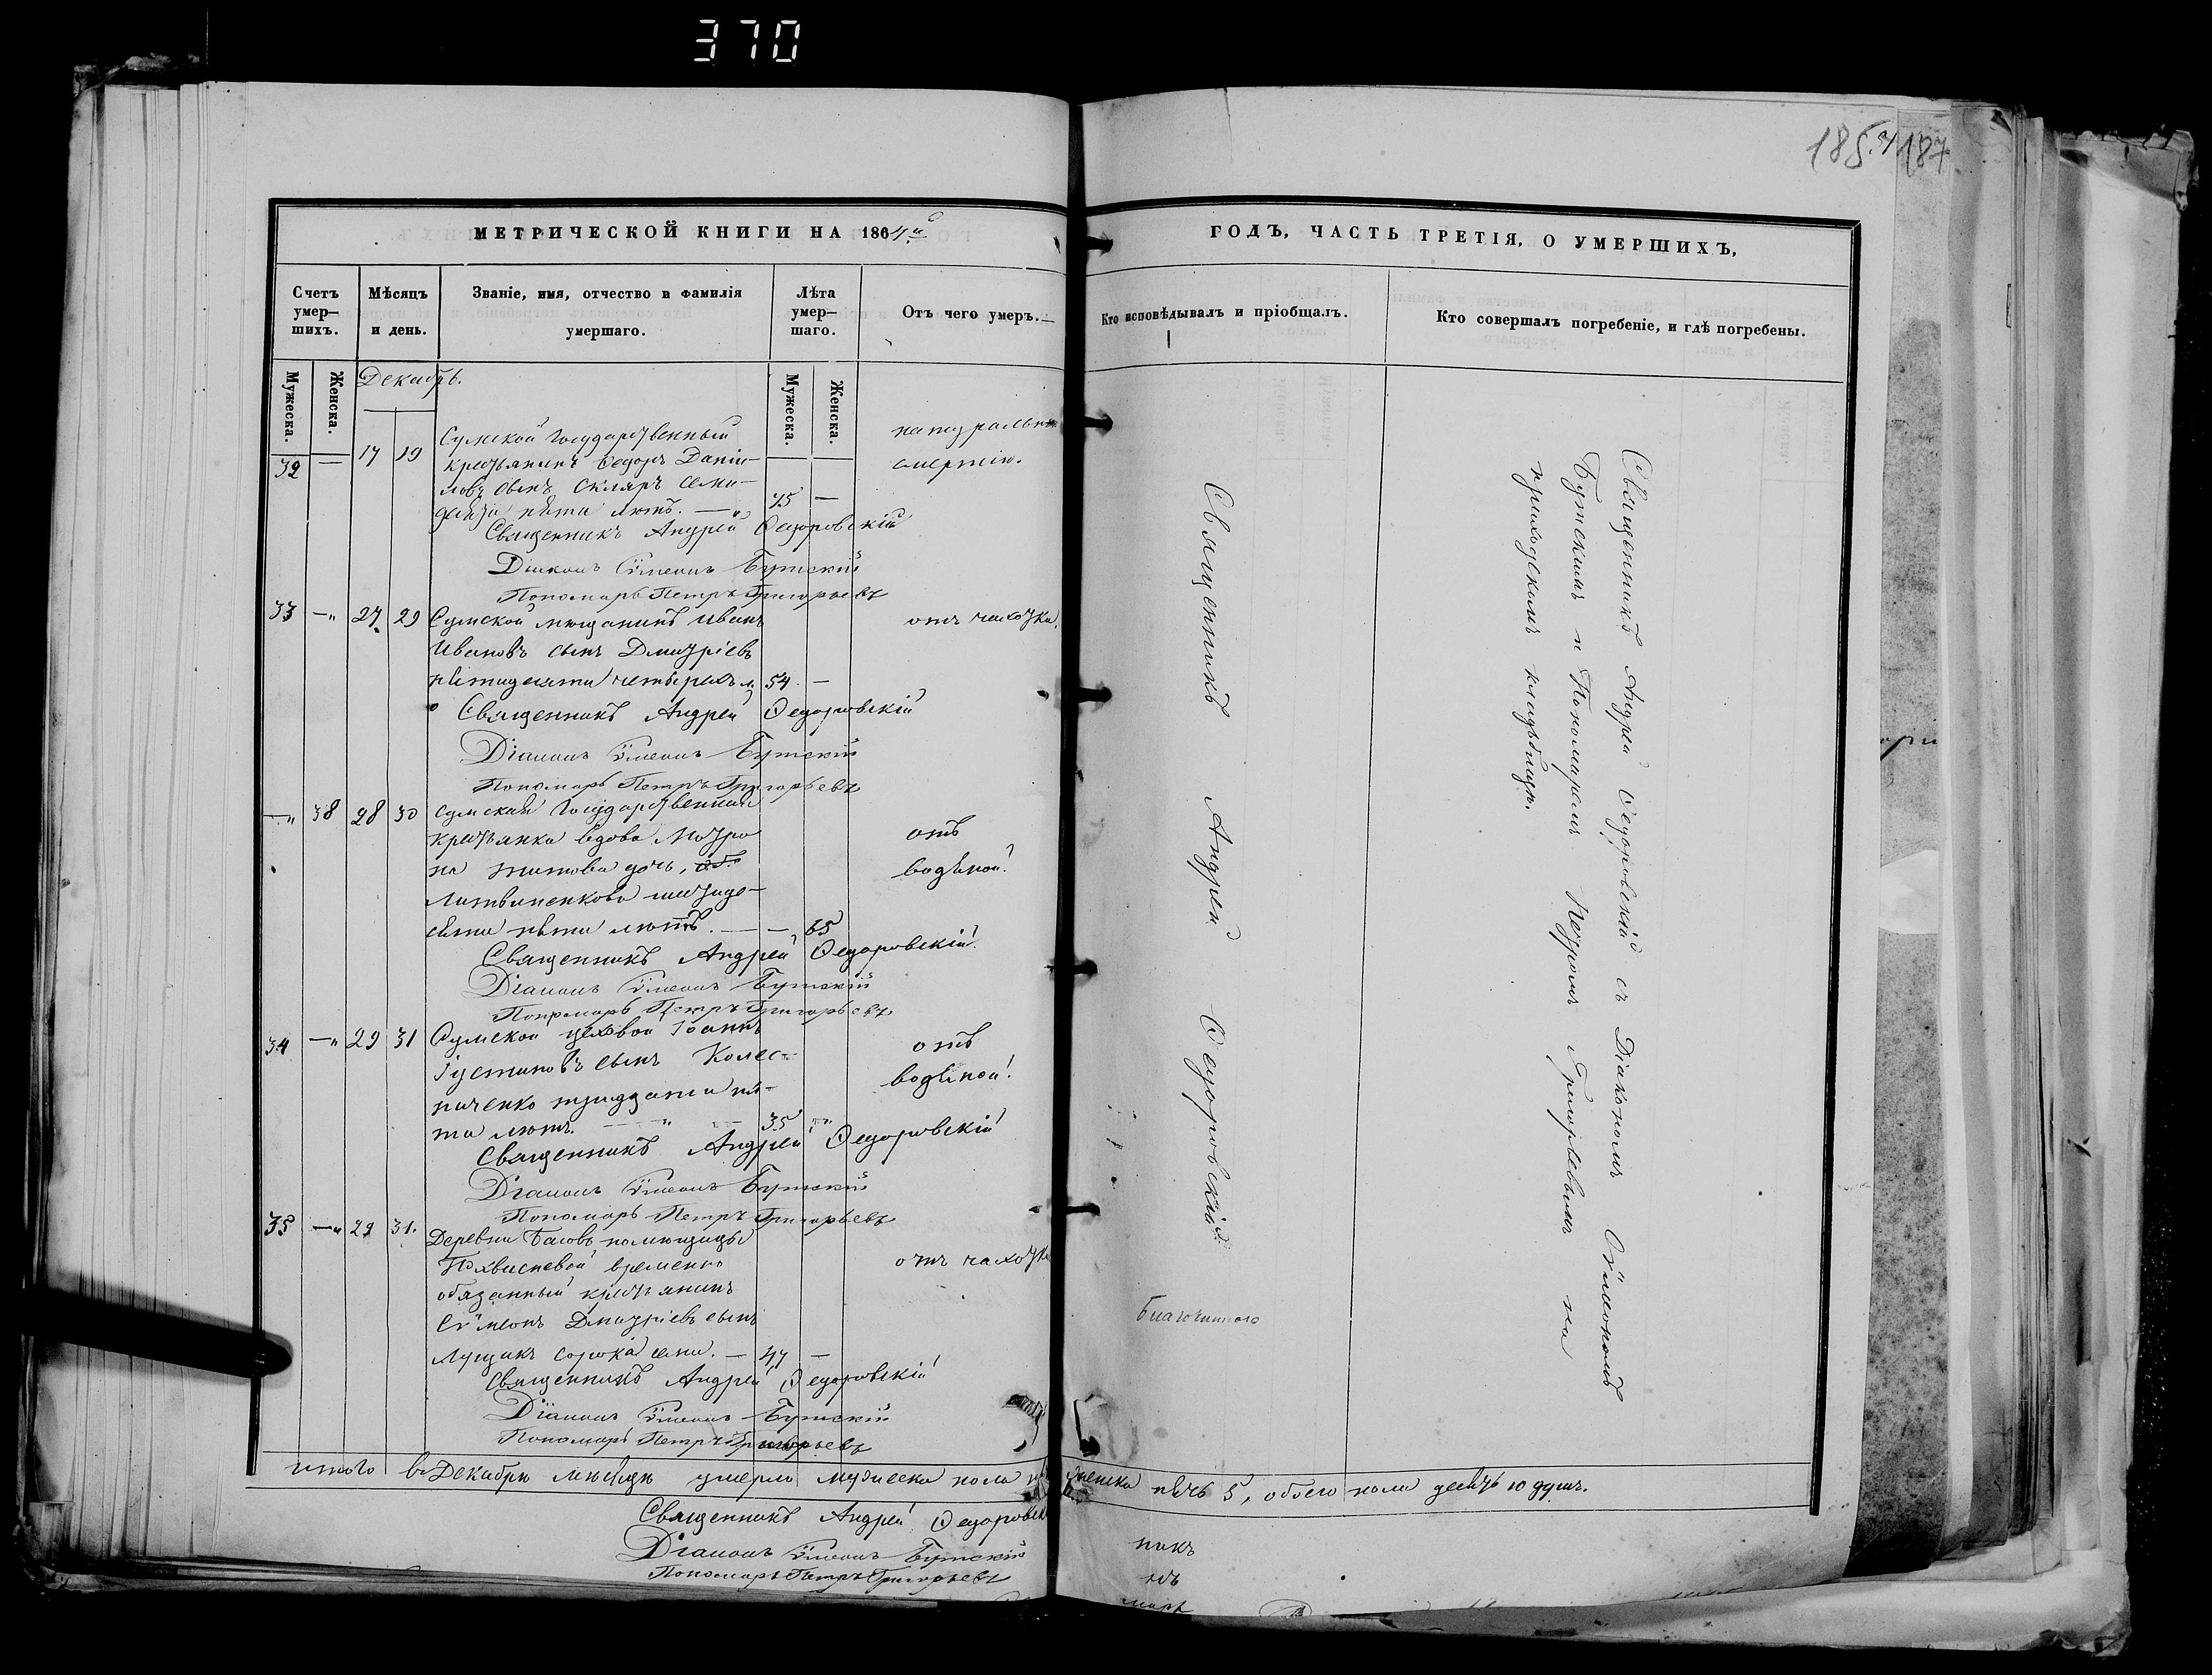 370
185 187
МЕТРИЧЕСКОЙ КНИГИ НА 1864й
Счетъ умер–шихъ.
Мѣсяцъ и день.
Званіе, имя, отчество и фамилія умершаго.
Лѣта умер–шаго.
Отъ чего умеръ.
Мужеска.
Женска.
Декабрь.
Мужеска.
Женска.
32 — 17 19 Сумской Государственный
крестьянинъ Ѳедоръ Даніи–
ловъ сынъ Скляръ семи–
десяти пяти лѣтъ. — 75 —
натуральн
смертію.
Священникъ Андрей Ѳедоровскій
Діаконъ Сѵмеонъ Бутскій
Пономарь Петръ Григорьевъ
33 — 27 29 Сумской мѣщанинъ Иванъ
Ивановъ сынъ Дмитріевъ
пятидесяти четырехъ л. 54 —
отъ чахотки.
Священникъ Андрей Ѳедоровскій
Діаконъ Сѵмеонъ Бутскій
Пономарь Петръ Григорьевъ
— 38 28 30 Сумская Государственная
крестьянка вдова Мотро
на Титова дочь,
Литвиненкова шестиде–
сяти пяти лѣтъ. — — 65
отъ
водяной.
Священникъ Андрей Ѳедоровскій
Діаконъ Сѵмеонъ Бутскій
Пономарь Петръ Григорьевъ
34 — 29 31 Сумской цеховой Іоаннъ
Іустиновъ сынъ Колес–
ниченко тридцати пя–
ти лѣтъ. — 35 —
отъ
водяной.
Священникъ Андрей Ѳедоровскій
Діаконъ Сѵмеонъ Бутскій
Пономарь Петръ Григорьевъ
35 — 29 31. Деревни Басовъ помѣщицы
Похвисневой временно
обязанный крестьянинъ
Сѵмеонъ Дмитріевъ сынъ
Лущикъ сорока семи. — 47 —
отъ чахотки
Священникъ Андрей Ѳедоровскій
Діаконъ Сѵмеонъ Бутскій
Пономарь Петръ Григорьевъ
итого въ Декабрѣ мѣсяцѣ умерло мужеска пола
Священникъ Андрей Ѳедоровск
Діаконъ Сѵмеонъ Бутскій
Пономарь Петръ Григорьевъ
ГОДЪ, ЧАСТЬ ТРЕТІЯ, О УМЕРШИХЪ,
Кто исповѣдывалъ и пріобщалъ.
Кто совершалъ погребеніе, и гдѣ погребены.
Священникъ Андрей Ѳедоровскій
Священникъ Андрей Ѳедоровскій съ Діакономъ Сѵмеономъ
Бутскимъ и Пономаремъ Петромъ Григорьевымъ на
приходскомъ кладбищѣ.
Благочиннаго
женска пять 5, обоего пола десять 10 душъ.
никъ
нъ
марь